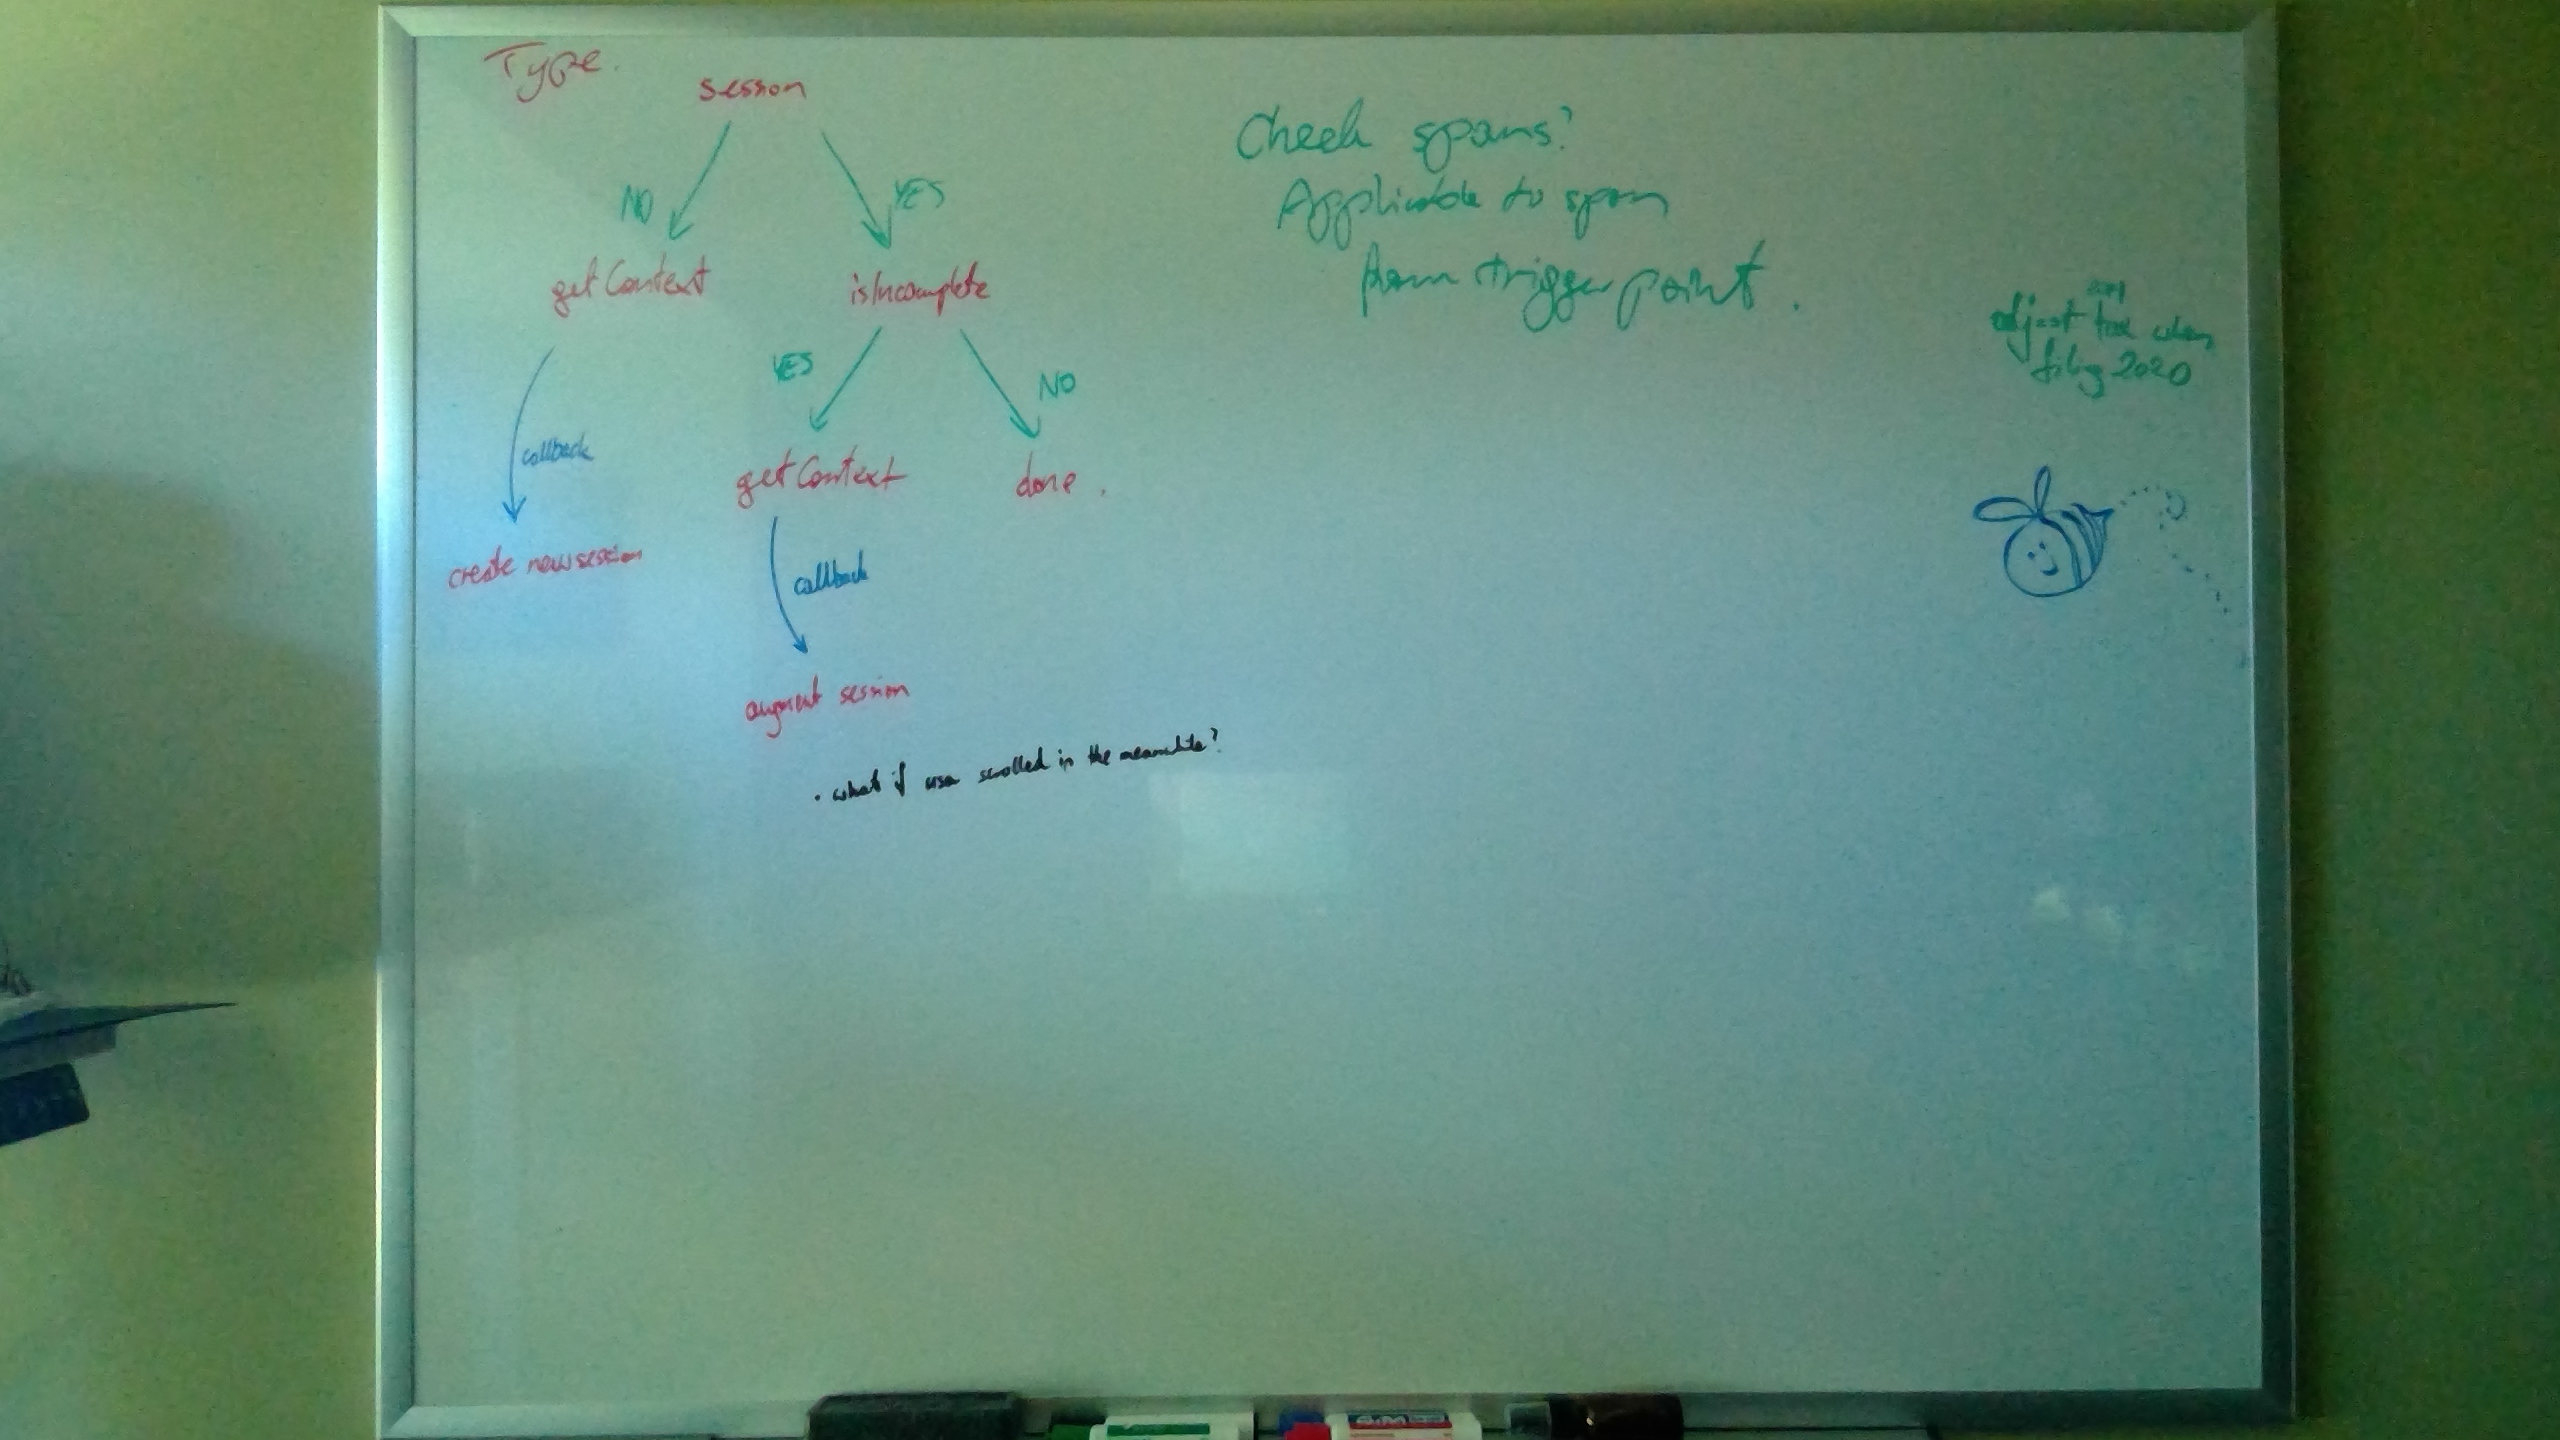 Type.
session
NO
YES
getContext
isIncomplete
YES
NO
callback
getContext
done.
create new session
callback
augment session
• what if user scrolled in the meanwhile?
Check spans?
Applicable to span
from trigger point.
adjust tax when
filing 2020